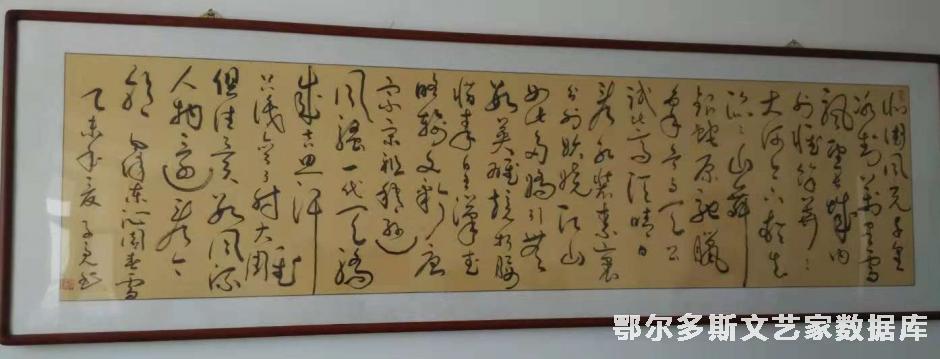 北国风光千里
冰封万里雪
飘望长城内
外惟余莽々
大河上下顿失
滔々山舞
银蛇原驰臘
象欲与天公
试比高须晴日
看红装素裹
分外妖娆江山
如此多娇引无
数英雄竞折腰
惜秦皇汉武
略输文采唐
宗宋祖稍逊
风骚一代天骄
成吉思汗
只识弯弓射大雕
俱往矣数风流
人物还看今
朝 毛泽东沁园春雪
乙未年夏
鄂尔多斯文艺家数据库